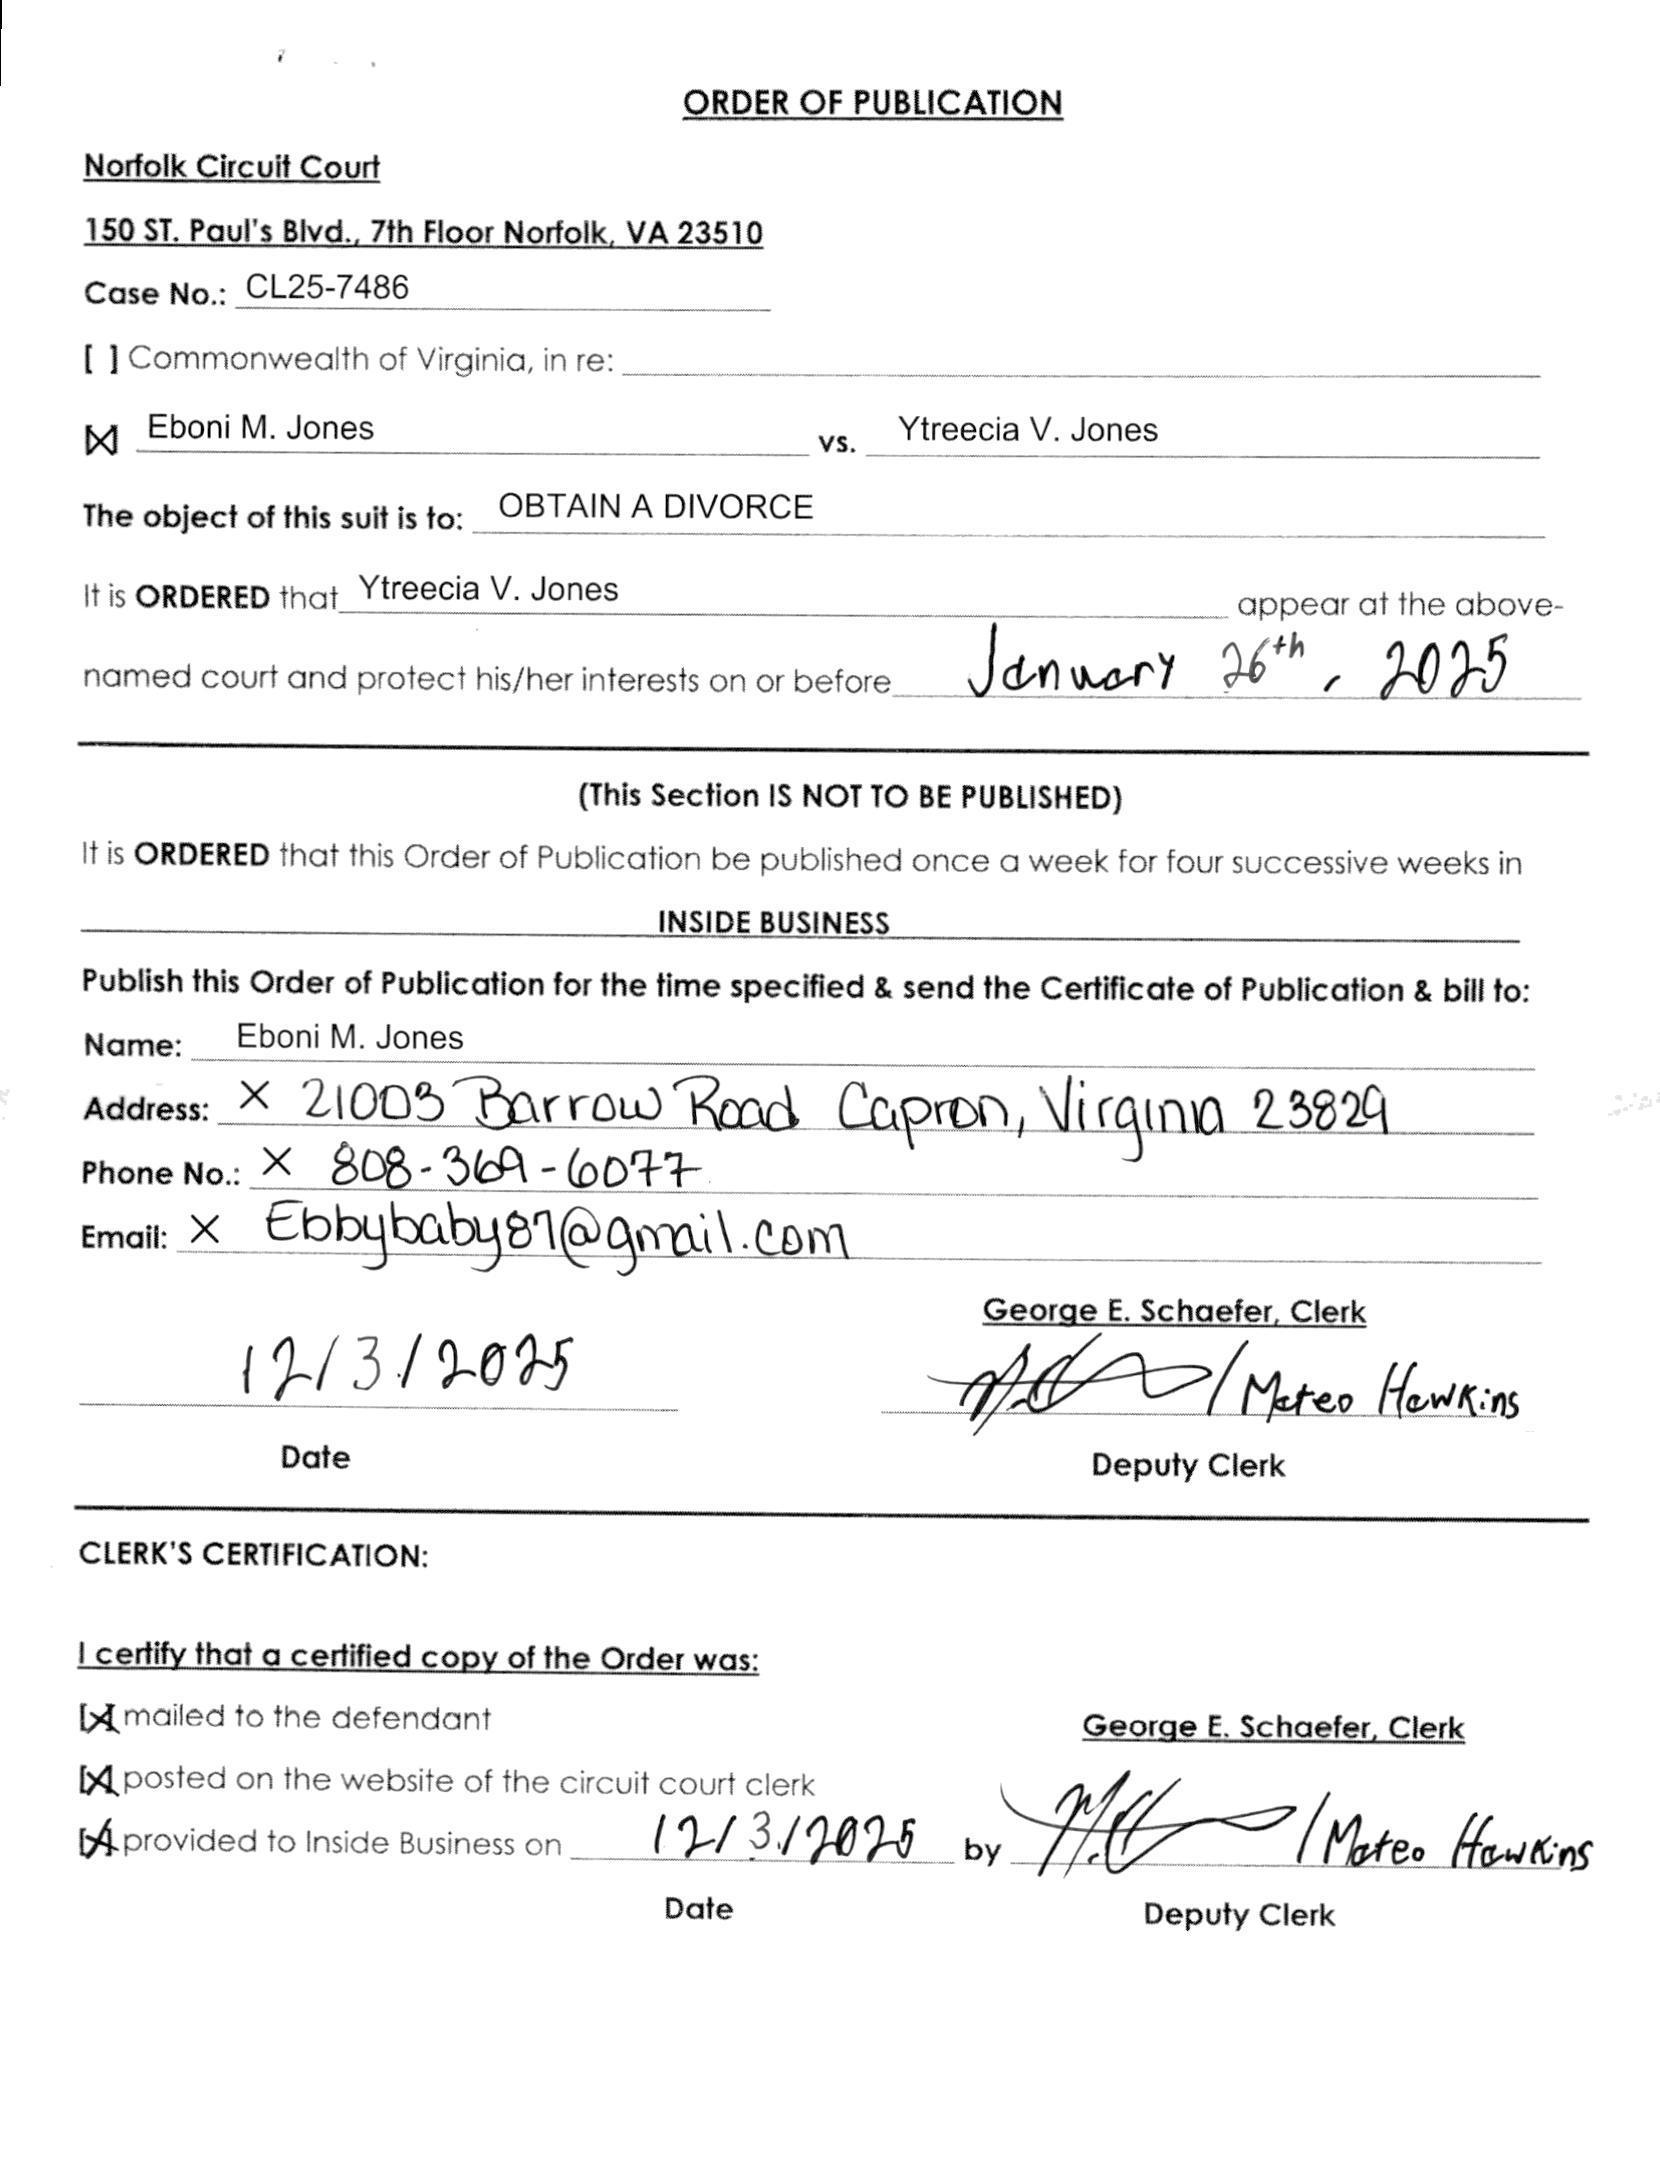 ORDER OF PUBLICATION
Norfolk Circuit Court
150 ST. Paul's Blvd., 7th Floor Norfolk, VA 23510
Case No.: CL25-7486
[ ] Commonwealth of Virginia, in re:
[X] Eboni M. Jones vs. Ytreecia V. Jones
The object of this suit is to: OBTAIN A DIVORCE
It is ORDERED that Ytreecia V. Jones appear at the above-
named court and protect his/her interests on or before January 26th, 2025
(This Section IS NOT TO BE PUBLISHED)
It is ORDERED that this Order of Publication be published once a week for four successive weeks in
INSIDE BUSINESS
Publish this Order of Publication for the time specified & send the Certificate of Publication & bill to:
Name: Eboni M. Jones
Address: X 21003 Barrow Road Capron, Virginia 23829
Phone No.: X 808-369-6077
Email: X Ebbybaby87@gmail.com
George E. Schaefer, Clerk
12/3/2025 / Mateo Hawkins
Date Deputy Clerk
CLERK'S CERTIFICATION:
I certify that a certified copy of the Order was:
[X] mailed to the defendant
George E. Schaefer, Clerk
[X] posted on the website of the circuit court clerk
[X] provided to Inside Business on 12/3/2025 by / Mateo Hawkins
Date Deputy Clerk